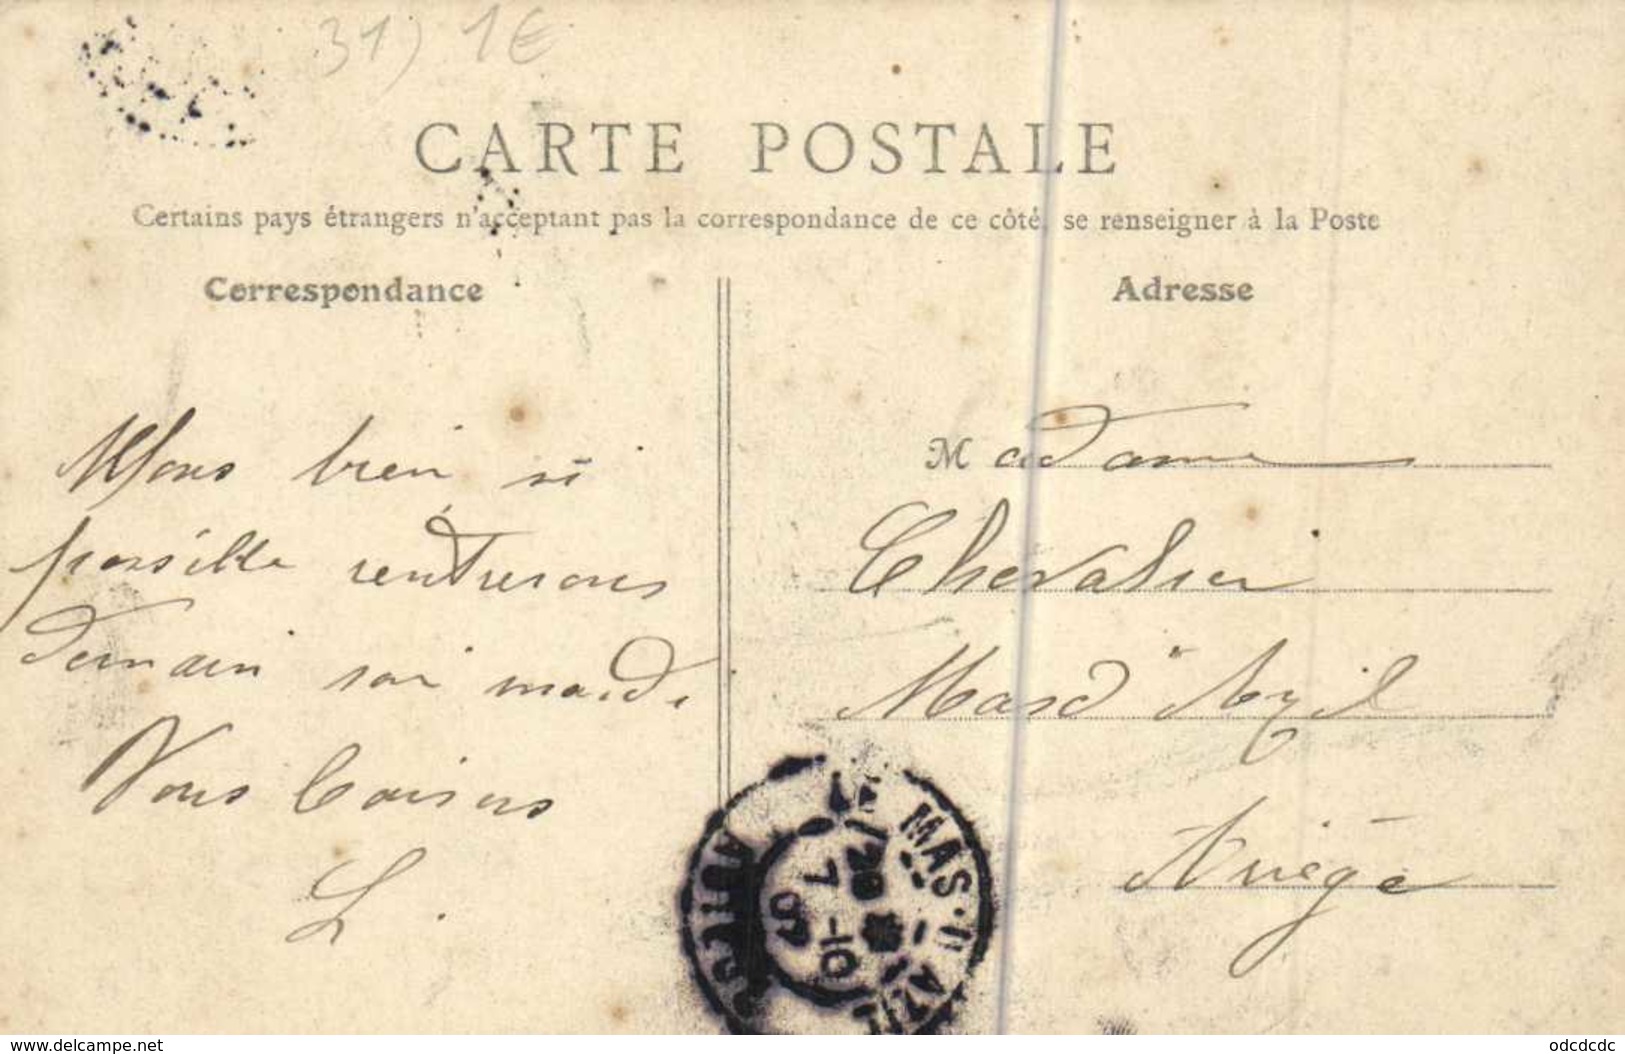 31) 1€
CARTE POSTALE
Certains pays étrangers n'acceptent pas la correspondance de ce côté, se renseigner à la Poste
Correspondance
Adresse
Allons bien si
possible rentrerons
demain soir mardi
Vous baisers
L.
Madame
Chevalier
Mas d'Azil
Ariège
LE MAS-D'AZIL
7 -10
07
ARIEGE
www.delcampe.net
odcdcdc